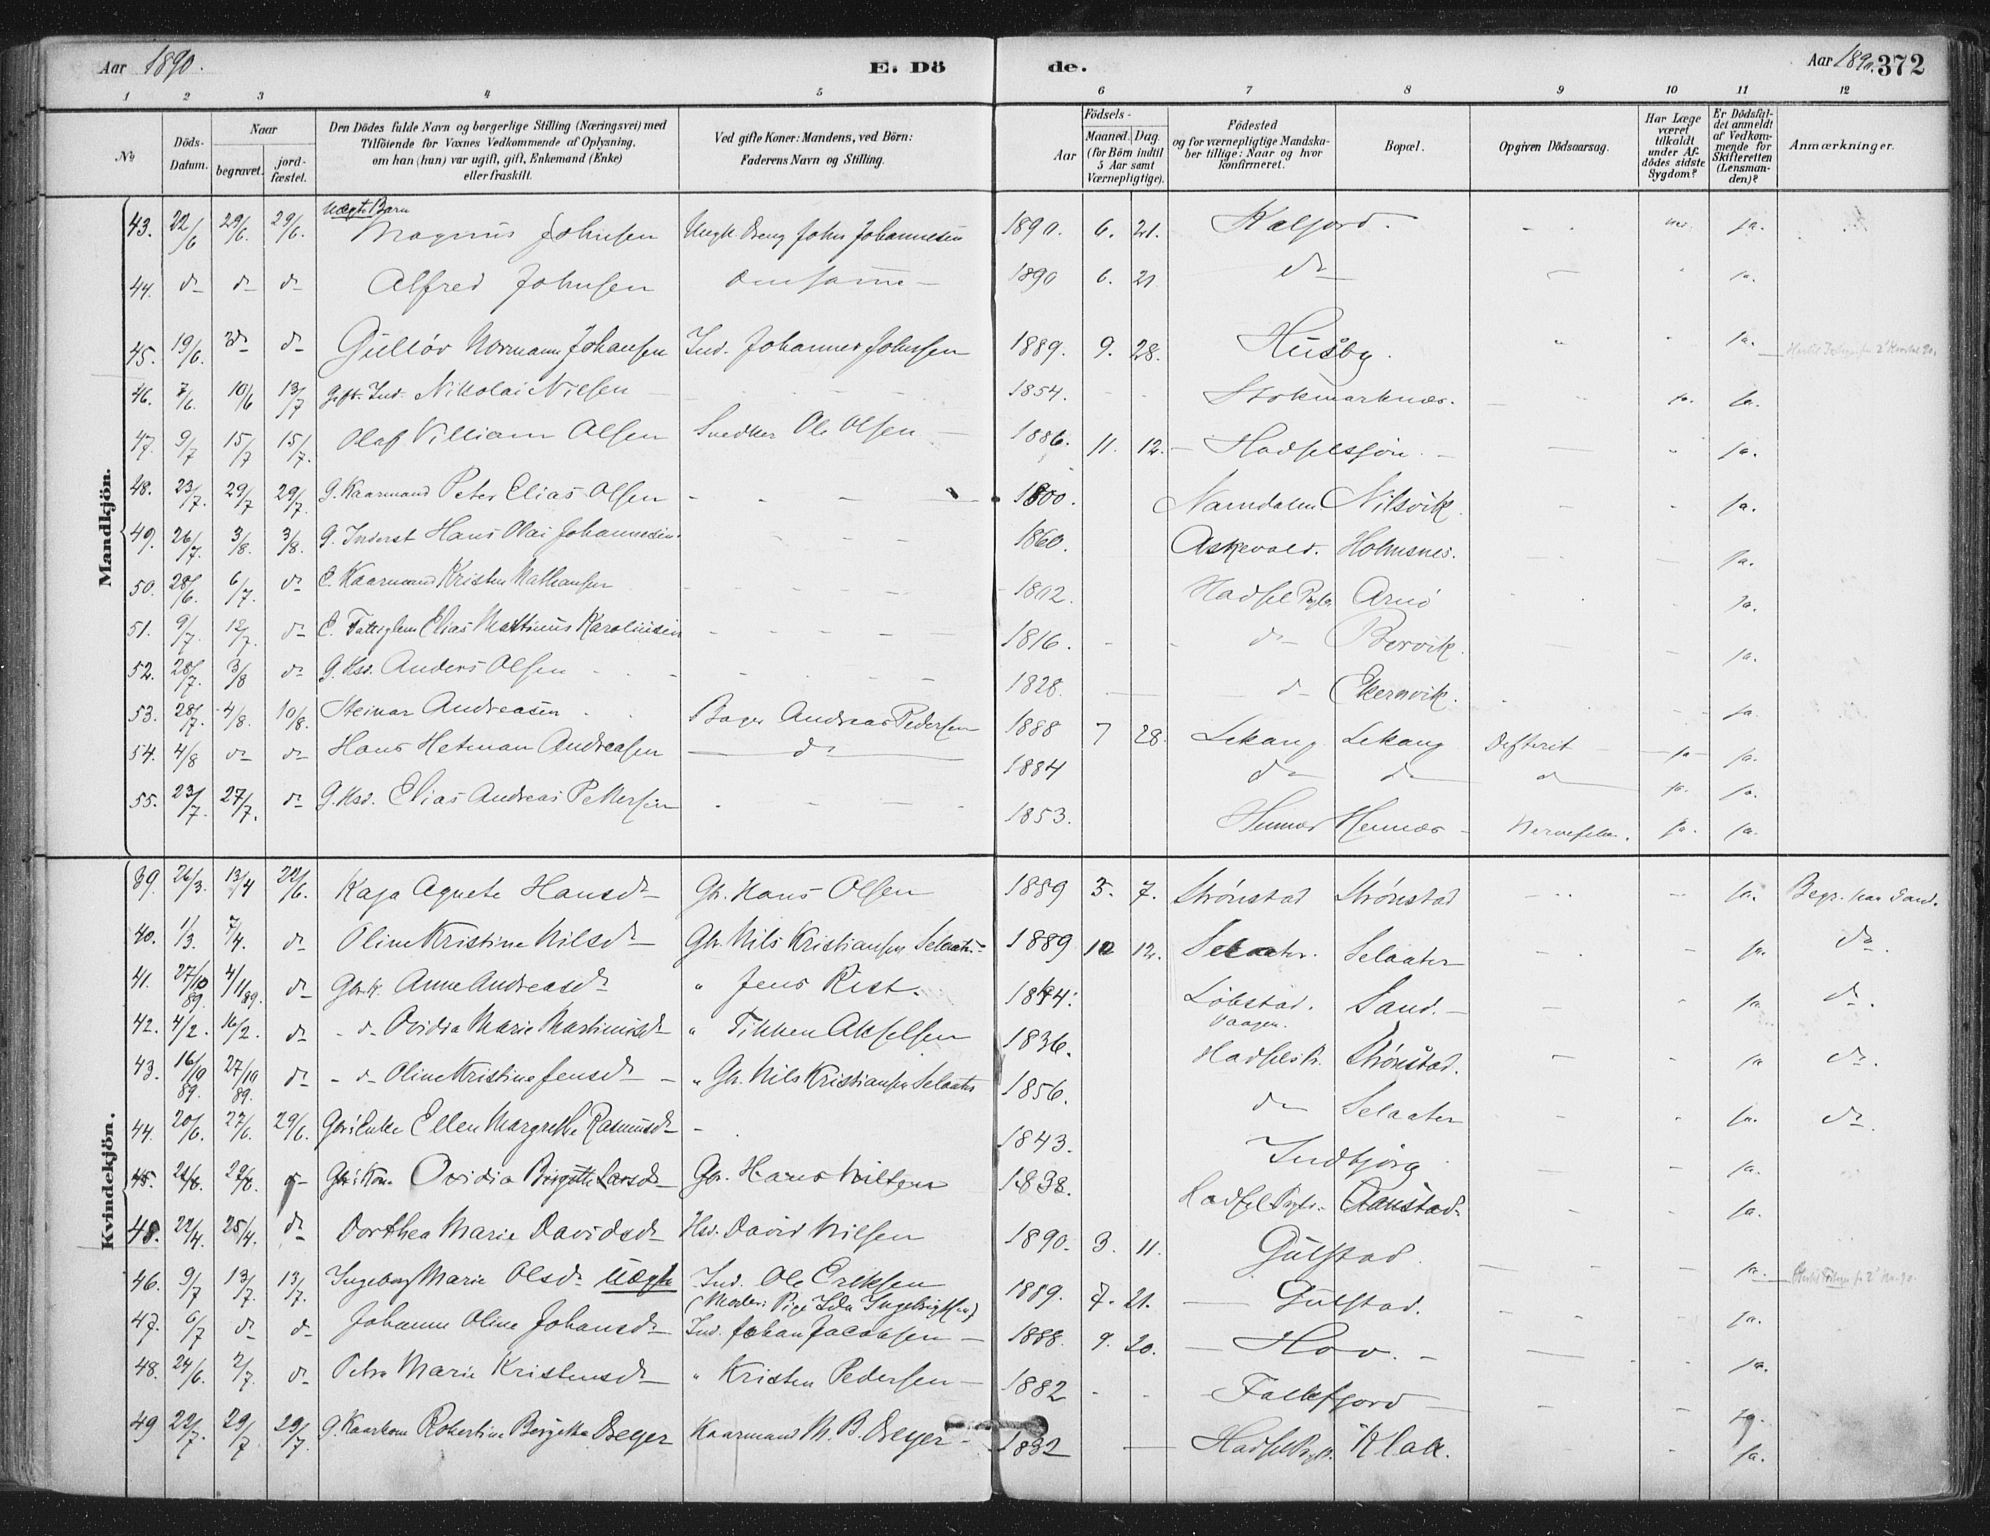 Aar 1890. E. Dö de. Aar 1890. 372
1 2 3 4 5 6 7 8 9 10 11 12
No
Döds-Datum.
Naar
begravet.
jord-fæstet.
Den Dödes fulde Navn og borgerlige Stilling (Næringsvei) med
Tilföiende for Voxnes Vedkommende af Oplysning,
om han (hun) var ugift, gift, Enkemand (Enke)
eller fraskilt.
Ved gifte Koner: Mandens, ved Börn:
Faderens Navn og Stilling.
Födsels-
Aar
Maaned. Dag.
(for Börn indtil
5 Aar samt
Værnepligtige).
Födested
og for værnepligtige Mandska-
ber tillige: Naar og hvor
konfirmeret.
Bopæl.
Opgiven Dödsaarsag.
Har Læge
været
tilkaldt
under Af-
dödes sidste
Sygdom?
Er Dödsfal-
det anmeldt
af Vedkom-
mende for
Skifteretten
(Lensman-
den)?
Anmærkninger.
Mandkjön.
Uægte Barn
43. 22/6 29/6. 29/6. Magnus Johnsen Ungk. Dreng John Johannesen 1890. 6. 21. Kalfjord. ja.
44. d- d- d- Alfred Johnsen om samme 1890 6. 21 d- ja.
45. 19/6. d- d- Gulløv Normann Johansen Ind. Johannes Johnsen 1889. 9. 28. Husby. ja.
46. 7/6. 10/6 13/7 Gift. Ind. Nikolai Nielsen 1854. Stokmarknæs. ja. ja.
47. 9/7 15/7 15/7. Olaf Villiam Olsen Snedker Ole Olsen 1886. 11. 12. Hadselsjøen. ja.
48. 23/7. 29/7 29/7. G. Kaarmand Peter Elias Olsen 1800. Namdalen Nilsvik. ja.
49. 26/7. 3/8. 3/8. G. Inderst Hans Olai Johannesen. 1860. Askevold. Holmsnes. ja.
50. 28/6. 6/7. d- E. Kaarmand Kristen Mathiassen 1802. Hadsel Prgld. Arnö ja.
51. 9/7. 12/7. d- E. Fattiglem Elias Martinus Karoliussen 1816. d- Børvik. ja.
52. 28/7. 3/8 d- G. Hsd. Anders Olsen 1828. d- Ekernvik. ja.
53. 28/7. 4/8. 10/8. Steinar Andreasen Bager Andreas Pedersen 1888 7 28. Lekang Lekang Difterit ja ja.
54. 4/8 d- d- Hans Hetman Andreasen d- 1884 d- d- d- ja. ja.
55. 23/7. 27/7. d- G. Hsd. Elias Andreas Pettersen 1853. Hennæs Hennæs Nervefeber. ja. ja.
Kvindekjön.
39. 26/3. 13/4 22/6. Kaja Agnete Hansd- Gbr. Hans Olsen 1889 5. 7. Strönstad Strönstad ja. Begr. paa Sand.
40. 1/3. 7/4. d- Oline Kristine Nilsd- Gbr. Nils Kristiansen Selaater 1889 10 12. Selaater. Selaater ja. d-.
41. 27/10 89. 4/11 89. d- Gbr. k. Anne Andreasd- " Jens Rist. 1844. Löbstad. Vaagen. Sand. ja d-.
42. 4/2. 16/2. d- - d- Ovidia Marie Martinusd- " Tikken Akselsen 1836. Hadsels Pr. Strönstad. ja d-.
43. 16/10 89. 27/10 89. d- - d- Oline Kristine Jensd- " Gbr. Nils Kristiansen Selaater 1856. d- Selaater ja. d-.
44. 20/6. 27/6. 29/6. Gbr: Enke Ellen Margrethe Rasmusd- 1843. Indbjörg ja.
45. 22/6. 29/6. d- Gbr: Kone Ovidia Birgitte Larsd- Gbr. Hans Nilsen 1838. Hadsel Prgld. Aanstad. ja.
45. 22/4. 25/4. d- Dorthea Marie Davidsd- Hsd. David Nilsen 1890. 3. 11. Gulstad. ja.
46. 9/7 13/7. 13/7. Ingeborg Marie Olsd- uægte Ind. Ole Eriksen
(Moder: Pige Ida Ingebrigtsen) 1889. 7. 21. Gulstad. ja.
47. 6/7 d- d- Johanne Oline Johansd- Ind. Johan Jacobsen 1888. 9. 20. Hov. ja.
48. 24/6. 2/7. d- Petra Marie Kristensd- " Kristen Pedersen 1882 Falkfjord
49 22/7. 29/7 29/7. G. Kaarkone Robertine Bergithe Beyer Kaarmand M. B. Beyer 1832 Hadsel Prgld. Klak. ja.